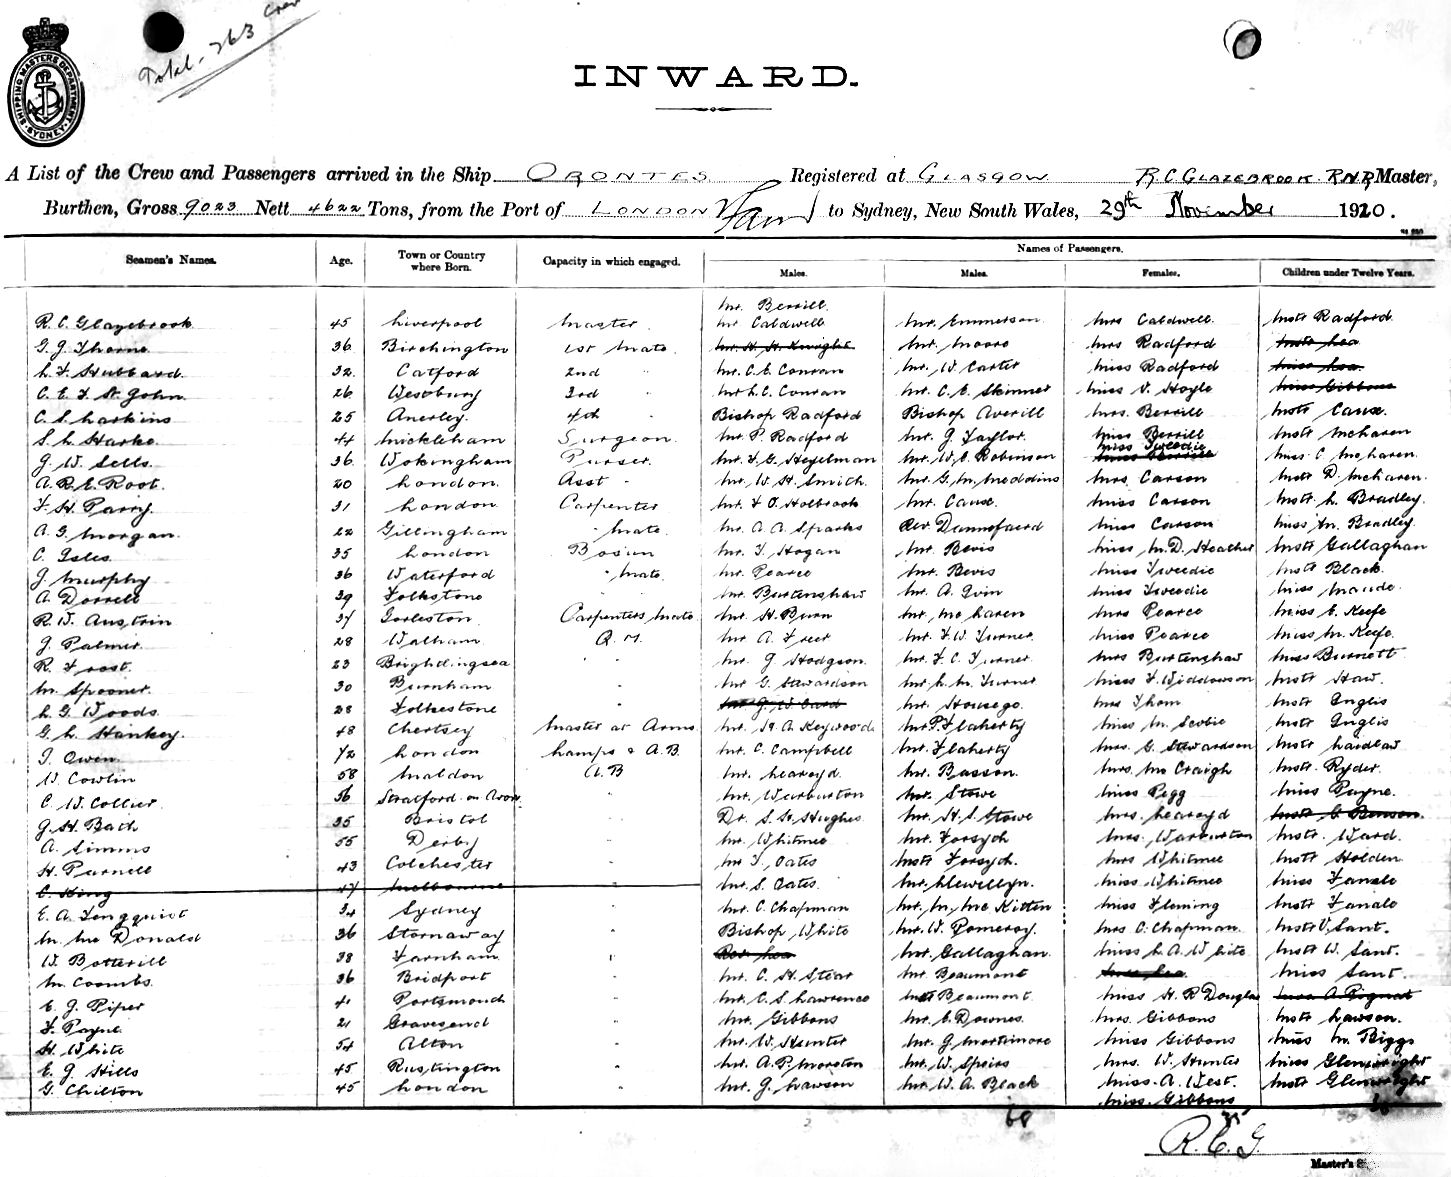 SHIPPING MASTERS DEPARTMENT
SYDNEY
Total - 263 Crew
INWARD.
A List of the Crew and Passengers arrived in the Ship ORONTES Registered at GLASGOW R.C. GLAZEBROOK RNR Master,
Burthen, Gross 9023 Nett 4622 Tons, from the Port of LONDON to Sydney, New South Wales, 29th November 1920.
Names of Passengers.
Seamen's Names. Age. Town or Country where Born. Capacity in which engaged. Males. Males. Females. Children under Twelve Years.
Mr. Berrill.
R. C. Glazebrook 45 Liverpool Master. Mr Caldwell Mr. Emmerson Mrs Caldwell. Mstr Radford.
G. J. Thorne 36 Birchington 1st Mate. Mr. H. H. Knight Mr. Moore Mrs Radford Mstr Lea
L. F. Hubbard. 32. Catford 2nd " Mr. C. E. Conran Mr. W. Carter Miss Radford Miss Lea.
C. E. F. St. John. 26 Westbury 3rd " Mr L. C. Conran Mr. C. E. Skinner Miss V. Hoyle Miss Gibbons
C. S. Larkins 25 Anerley. 4th " Bishop Radford Bishop Averill Mrs. Berrill Mstr Cause.
S. L. Harke. 44 Mickleham Surgeon. Mr. P. Radford Mr. J. Taylor. Miss Berrill Mstr McLaren
Miss Tweedie
J. W. Sells. 36. Wokingham Purser. Mr. F. G. Heyelman Mr. W. E. Robinson Miss C. McLaren.
A. R. E. Root. 20 London. Asst " Mr. W. H. Smith. Mr. G. M. Meddins Mrs. Carson Mstr D. McLaren.
F. H. Parry. 31 London Carpenter Mr. F. O. Holbrook Mr. Cause. Miss Carson Mstr L. Bradley.
A. G. Morgan. 22 Gillingham " Mate. Mr. A. A. Sparks Rev. Miss Carson Miss M. Bradley.
C. Isles. 35 London Bosun Mr. T. Hogan Mr. Bevis Miss M. D. Heather Mstr Gallaghan
J. Murphy 36 Waterford " Mate. Mr. Pearce Mr. Bevis Miss Tweedie Mstr Black.
A. Dorrell 39 Folkstone " Mr. Burtenshaw Mr. A. Miss Tweedie Miss Maude.
R. W. Austrin 37 Gorleston. Carpenters Mate. Mr. H. Burn Mr. McLaren Mrs Pearce Miss E. Keefe
J. Palmer. 28 Walham. Q. M. Mr A. Freer Mr. F. W. Turner. Miss Pearce Miss M. Keefe.
R. Frost. 23 Brightlingsea " Mr. J. Hodgson. Mr. F. C. Turner. Mrs Burtenshaw Miss Burnett
M. Spooner. 30 Burnham " Mr G. Stewardson Mr. L. M. Turner Miss F. Widdowson Mstr Haw.
L. G. Woods. 28 Folkestone " Mr. J. W. Card Mr. Housego. Mrs Thom Mstr Inglis
G. L. Hankey. 48 Chertsey Master at Arms Mr. H. A. Keywood. Mr. P. Flaherty Miss M. Scobie Mstr Inglis
T. Owen. London Lamps & A.B. Mr. C. Campbell Mr. Flaherty Mrs. G. Stewardson Mstr Laidlaw
W. Cowlin 58 Maldon A.B Mr. Learoyd. Mr. Basson. Mrs. McCraigh Mstr. Ryder.
C. W. Collier. 56 Stratford on Avon. " Mr. Warburton Mr. Stowe Miss Pegg Miss Payne.
J. H. Bath 35 Bristol " Dr. S. H. Hughes Mr. H. S. Stowe Mrs. Learoyd Mstr C. Benson.
A. Simms 55 Derby " Mr. Whitmee Mr. Forsyth Mrs. Warburton Mstr. Ward.
H. Purnell 43 Colchester " Mr T. Oates Mstr Forsyth. Mrs Whitmee Mstr Holden.
C. King 47 Melbourne " Mr. S. Oates. Mr. Llewellyn. Miss Whitmee Miss Fanale
E. A. Tengquist 34 Sydney " Mr. C. Chapman Mr. M. McKitten Miss Fleming Mstr Fanale
M. McDonald 36 Stornaway " Bishop White Mr. W. Pomeroy. Mrs C. Chapman. Mstr V. Sant.
W. Botterill 38 Farnham. " Rev. Lea Mr. Gallaghan. Miss L. A. White Mstr W. Sant.
M. Coombs. 36 Bridport " Mr. C. H. Stear Mr. Beaumont Mrs Lea Miss Sant.
E. J. Piper 41 Portsmouth " Mr. C. S. Lawrence Mstr Beaumont. Miss H. R Douglas
F. Payne. 21 Gravesend " Mr. Gibbons Mr. E. Downes. Mrs. Gibbons Mstr Lawson.
H. White 54 Alton " Mr. W. Hunter Mr. G. Mortimore Miss Gibbons Miss M. Biggs
E. J. Hills 45 Rustington " Mr. A. P. Moreton Mr. W. Speirs Mrs. W. Hunter Miss Glenwright
G. Chilton 45 London " Mr. J. Lawson Mr. W. A. Black Miss. A. West. Mstr Glenwright
Miss. Gibbons
68
R.C.G.
Master's